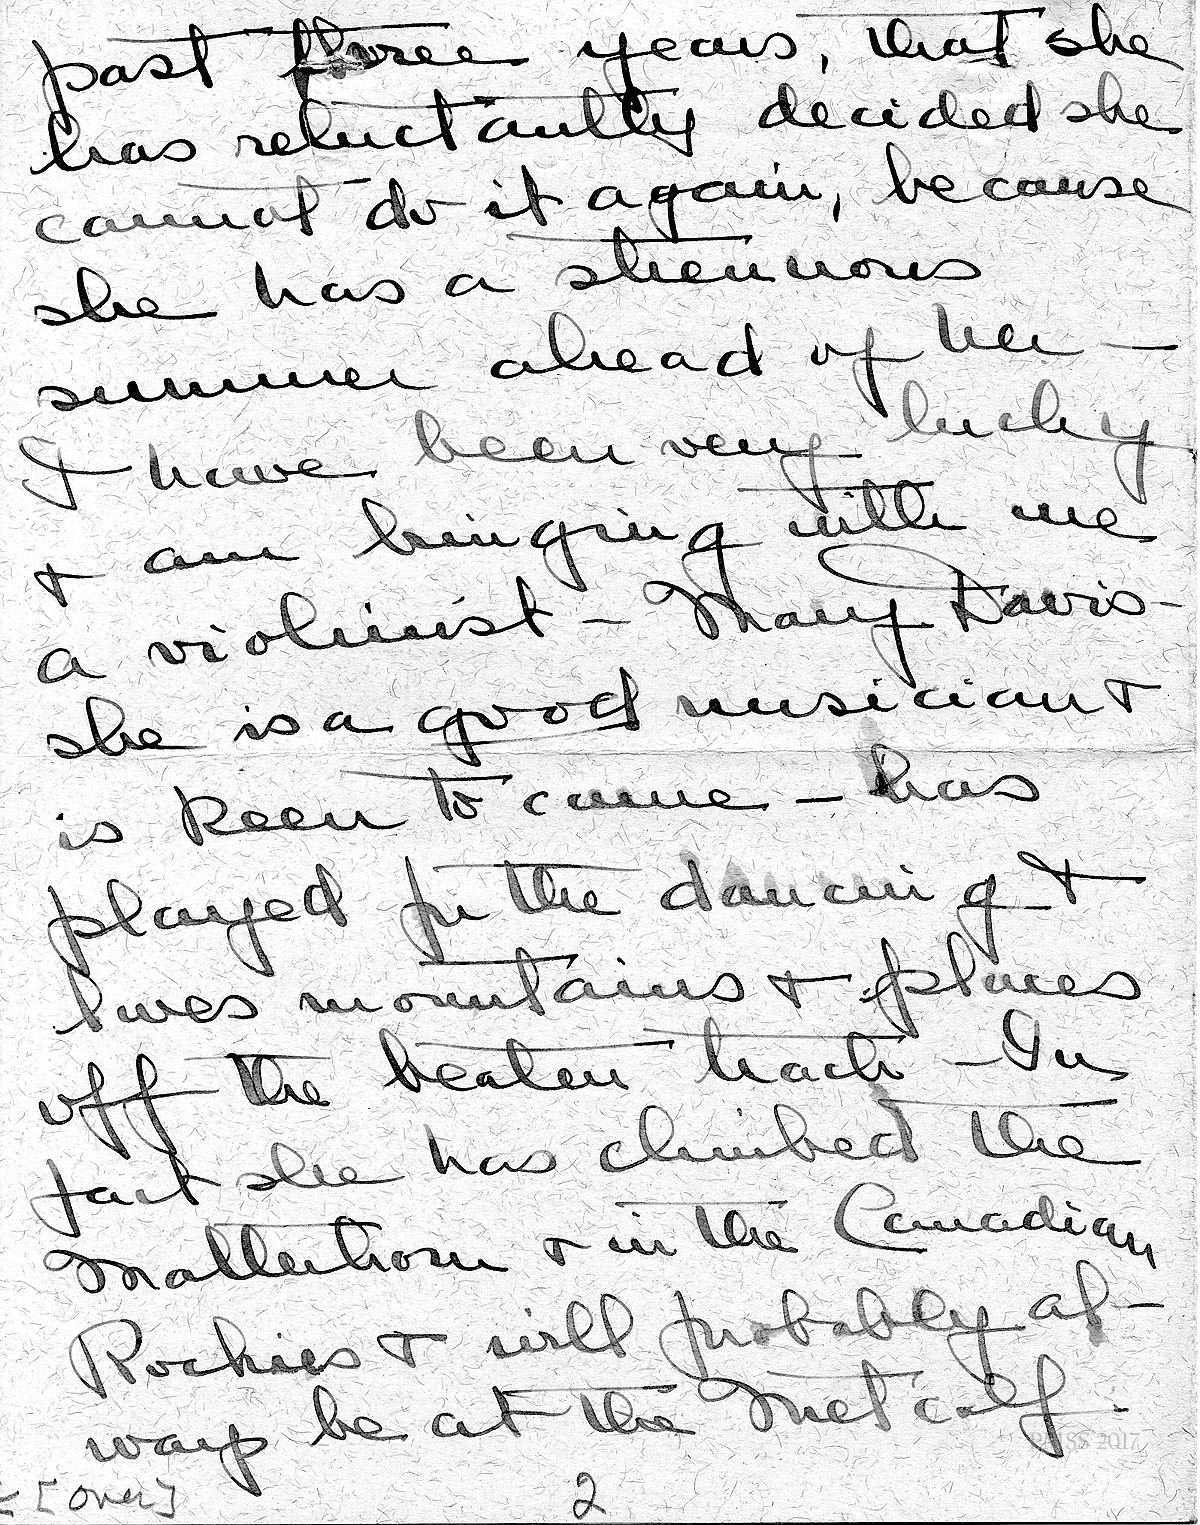 past three years, that she
has reluctantly decided she
cannot do it again, because
she has a strenuous
summer ahead of her —
I have been very lucky
& am bringing with me
a violinist - Mary Davis -
she is a good musician &
is keen to come - has
played for the dancing &
loves mountains & places
off the beaten track - In
fact she has climbed the
Matterhorn & in the Canadian
Rockies & will probably al-
ways be at the Metcalf.
[over] 2
PMSS 2017